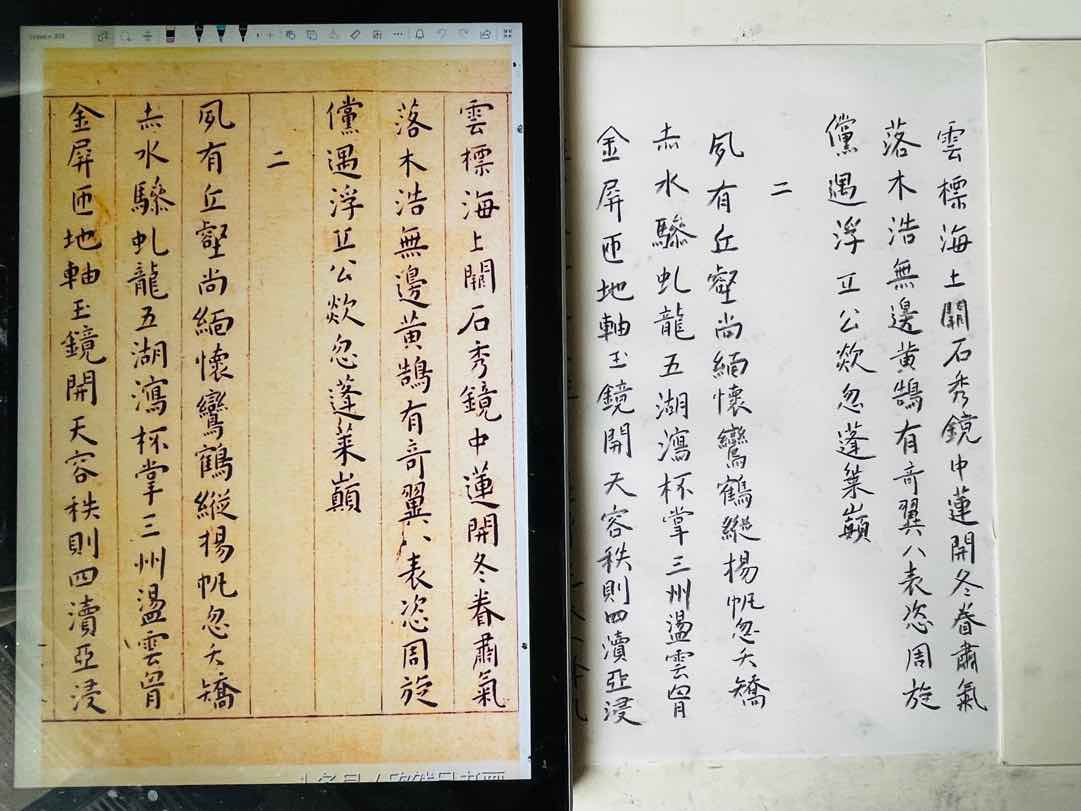 雲標海上關石秀鏡中蓮開冬眷肅氣
落木浩無邊黃鵠有奇翼八表恣周旋
儻遇浮丘公歘忽蓬萊巔
二
夙有丘壑尚緬懷鸞鶴縱揚帆忽夭矯
赤水驂虬龍五湖瀉杯掌三州盪雲胷
金屏匝地軸玉鏡開天容秩則四瀆亞浸
雲標海上關石秀鏡中蓮開冬眷肅氣
落木浩無邊黃鵠有奇翼八表恣周旋
儻遇浮丘公歘忽蓬萊巔
二
夙有丘壑尚緬懷鸞鶴縱揚帆忽夭矯
赤水驂虬龍五湖瀉杯掌三州盪雲胷
金屏匝地軸玉鏡開天容秩則四瀆亞浸